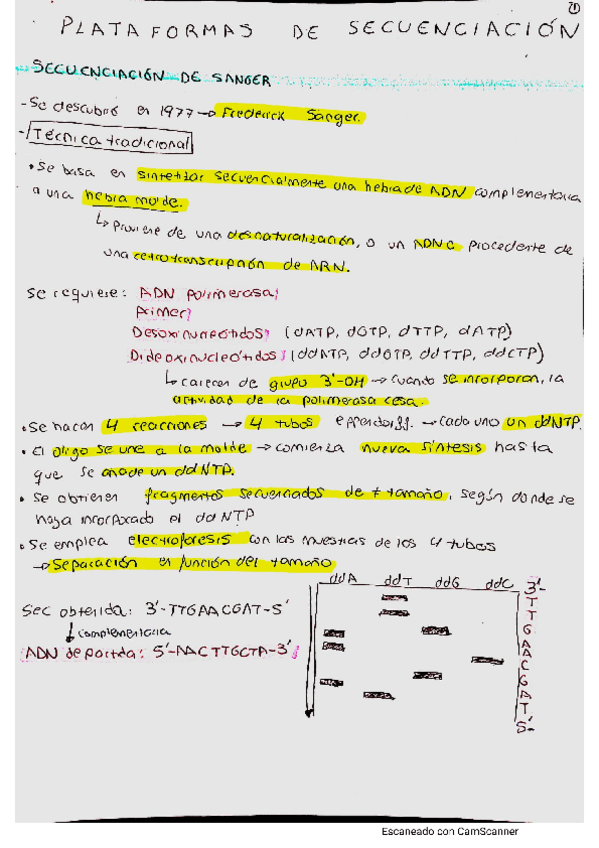 1
PLATAFORMAS DE SECUENCIACIÓN
SECUENCIACIÓN DE SANGER
- Se descubrió en 1977 → Frederick Sanger.
- Técnica tradicional
• Se basa en sintetizar secuencialmente una hebra de ADN complementaria
a una hebra molde.
↳ Proviene de una desnaturalización, o un ADNc procedente de
una retrotranscripción de ARN.
Se requiere: ADN polimerasa;
Primer;
Desoxinucleótidos; (dATP, dGTP, dTTP, dATP)
Dideoxinucleótidos; (ddATP, ddGTP, ddTTP, ddCTP)
↳ carecen de grupo 3'-OH → cuando se incorporan, la
actividad de la polimerasa cesa.
• Se hacen 4 reacciones → 4 tubos eppendorff. → cada uno un ddNTP.
• El oligo se une a la molde → comienza nueva síntesis hasta
que se añade un ddNTP.
• Se obtienen fragmentos secuenciados de ≠ tamaño, según donde se
haya incorporado el ddNTP
• Se emplea electroforesis con las muestras de los 4 tubos
→ Separación en función del tamaño
ddA ddT ddG ddC
Sec obtenida: 3'-TTGAACGAT-5'
↓ complementaria
ADN de partida: 5'-AACTTGCTA-3';
3'-
T
T
G
A
A
C
G
A
T
5'-
Escaneado con CamScanner